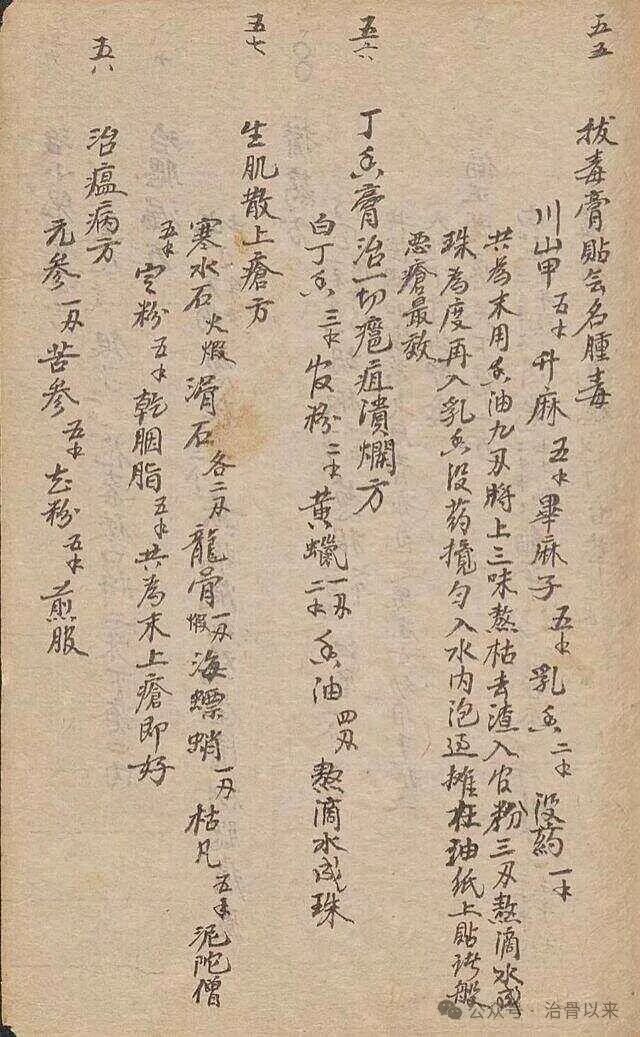 五五
拔毒膏貼無名腫毒
川山甲五本升麻五本畢麻子五本乳香二本没药一本
共為末用香油九刄將上三味熬枯去渣入官粉三刄熬滴水成
珠為度再入乳香没药攪匀入水内泡過攤在油纸上貼諸般
恶瘡最效
五六
丁香膏治一切瘡疽潰爛方
白丁香三本官粉二本黄蠟一刄二本香油四刄熬滴水成珠
五七
生肌散上瘡方
寒水石火煅滑石各二刄龍骨煅一刄海螵蛸一刄枯凡五本泥陀僧
五本定粉五本乾胭脂五本共為末上瘡即好
五八
治瘟病方
元参一刄苦参五本花粉五本煎服
公众号·治骨以来